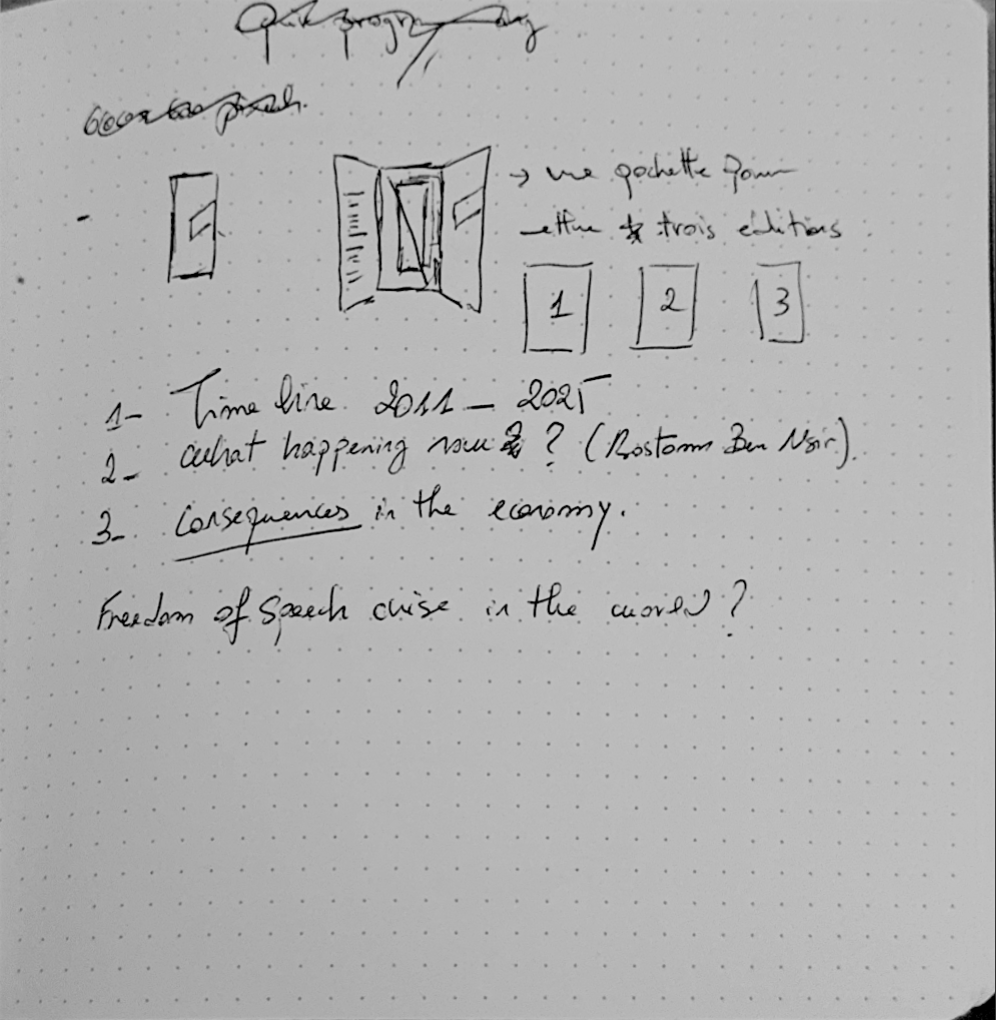 → une pochette pour
mettre trois éditions
1 2 3
1- Time line 2011 - 2025
2- what happening now ? (Rostom Ben Nsir).
3- Consequences in the economy.
Freedom of Speech crise in the world ?